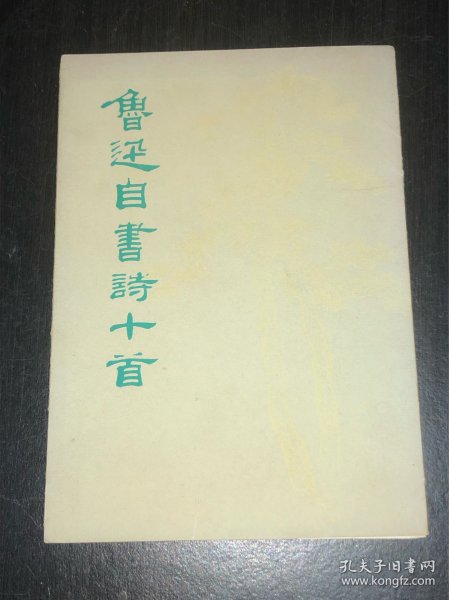 魯迅自書詩十首
孔夫子旧书网
www.kongfz.com